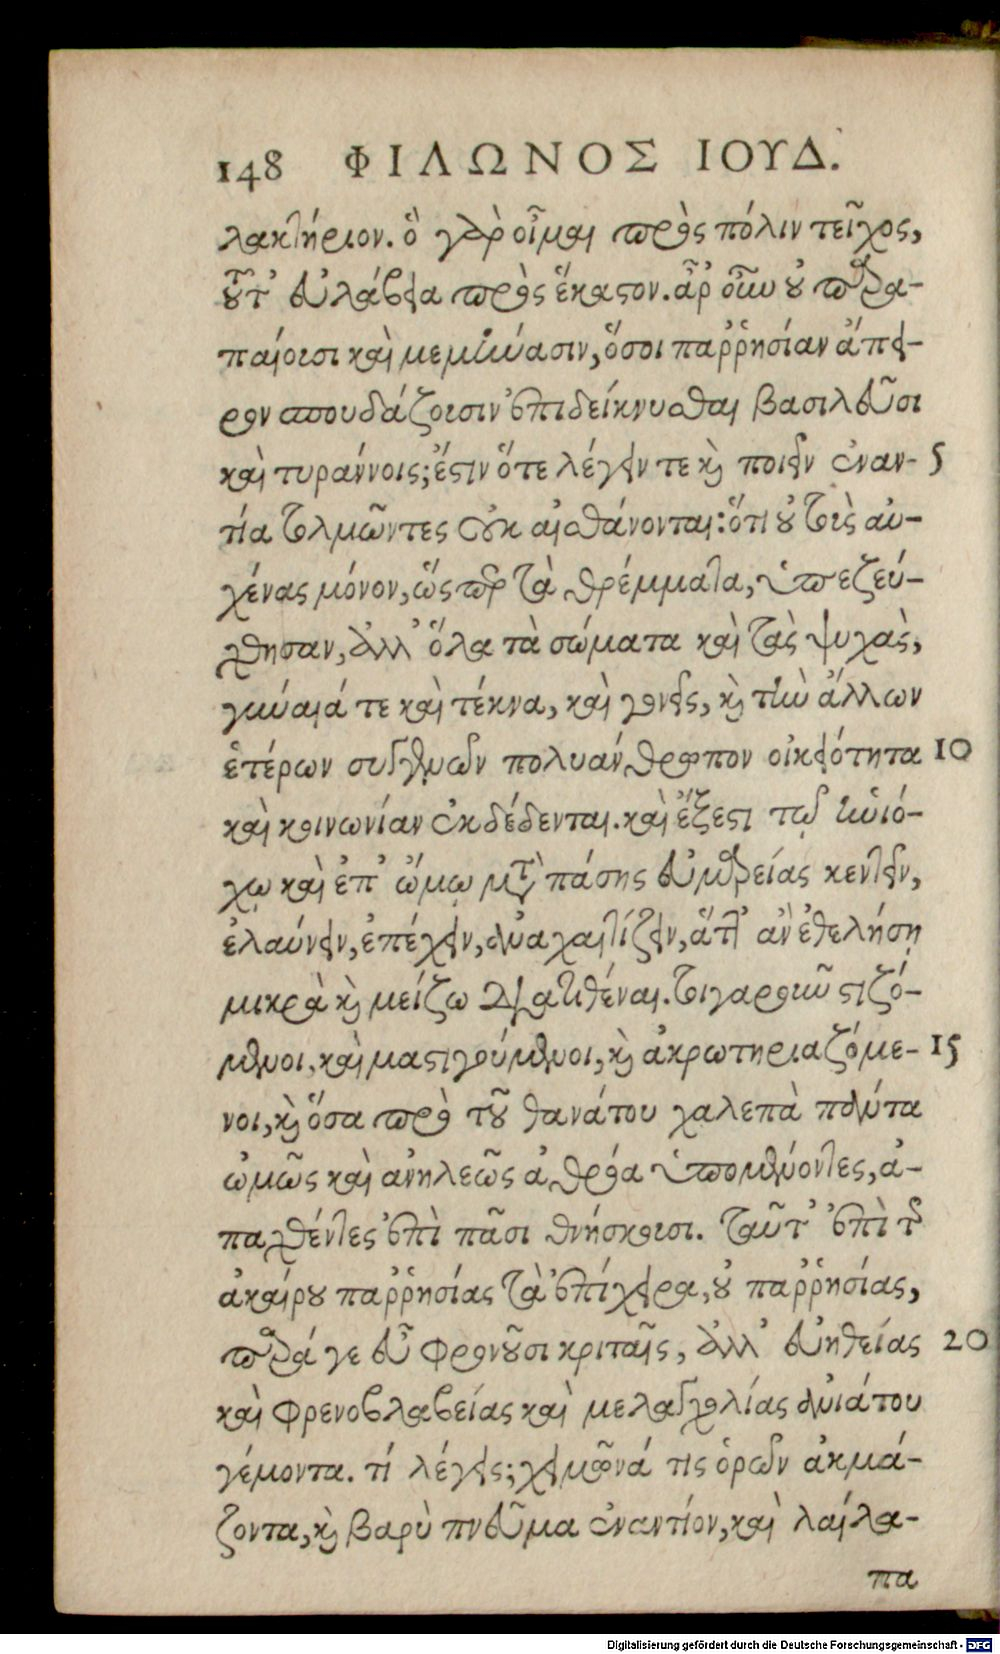 148 ΦΙΛΩΝΟΣ ΙΟΥΔ.
λακτήριον. ὃ γὰρ οἶμαι πρὸς πόλιν τεῖχος,
τοῦτ' εὐλάβεια πρὸς ἕκαστον. ἆρ' οὖν οὐ παρα-
παίουσι καὶ μεμήνασιν, ὅσοι παῤῥησίαν ἄπει-
ρον σπουδάζουσιν ἐπιδείκνυσθαι βασιλεῦσι
καὶ τυράννοις; ἔστιν ὅτε λέγειν τε καὶ ποιεῖν ἐναν- 5
τία τολμῶντες οὐκ αἰσθάνονται: ὅτι οὐ τοὺς αὐ-
χένας μόνον, ὥσπερ τὰ θρέμματα, ὑπεζεύ-
χθησαν, ἀλλ' ὅλα τὰ σώματα καὶ τὰς ψυχὰς,
γυναῖά τε καὶ τέκνα, καὶ γονεῖς, καὶ τὴν ἄλλων
ἑτέρων συγγενῶν πολυάνθρωπον οἰκειότητα 10
καὶ κοινωνίαν ἐκδέδενται. καὶ ἔξεστι τῷ ἡνιό-
χῳ καὶ ἐπ' ὤμῳ μετὰ πάσης εὐμαρείας κεντεῖν,
ἐλαύνειν, ἐπέχειν, ἀναχαιτίζειν, ἅττ' ἂν ἐθελήσῃ
μικρὰ καὶ μείζω διατιθέναι. τοιγαροῦν στιζό-
μενοι, καὶ μαστιγούμενοι, καὶ ἀκρωτηριαζόμε- 15
νοι, καὶ ὅσα πρὸ τοῦ θανάτου χαλεπὰ πάντα
ὠμῶς καὶ ἀνηλεῶς ἀθρόα ὑπομένοντες, ἀ-
παχθέντες ἐπὶ πᾶσι θνήσκουσι. ταῦτ' ἐπὶ τῆς
ἀκαίρου παῤῥησίας τὰ ἐπίχειρα, οὐ παῤῥησίας,
παρά γε εὖ φρονοῦσι κριταῖς, ἀλλ' εὐηθείας 20
καὶ φρενοβλαβείας καὶ μελαγχολίας ἀνιάτου
γέμοντα. τί λέγεις; χειμῶνά τις ὁρῶν ἀκμά-
ζοντα, καὶ βαρὺ πνεῦμα ἐναντίον, καὶ λαίλα-
πα
Digitalisierung gefördert durch die Deutsche Forschungsgemeinschaft - DFG